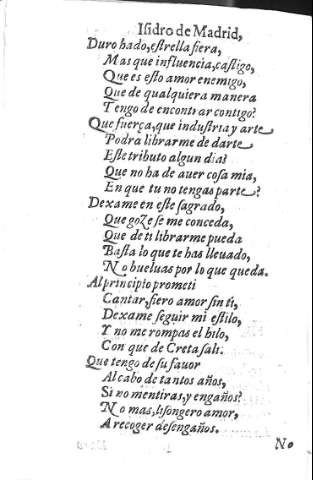 Isidro de Madrid,
Duro hado, estrella fiera,
Mas que influencia, castigo,
Que es esto amor enemigo,
Que de qualquiera manera
Tengo de encontrar contigo?
Que fuerça, que industria y arte
Podra librarme de darte
Este tributo algun dia?
Que no ha de auer cosa mia,
En que tu no tengas parte?
Dexame en este sagrado,
Que goze se me conceda,
Que de ti librarme pueda
Basta lo que te has lleuado,
No bueluas por lo que queda.
Al principio prometi
Cantar, fiero amor sin ti,
Dexame seguir mi estilo,
Y no me rompas el hilo,
Con que de Creta sali.
Que tengo de su fauor
Al cabo de tantos años,
Si no mentiras, y engaños?
No mas, lisongero amor,
A recoger desengaños.
No